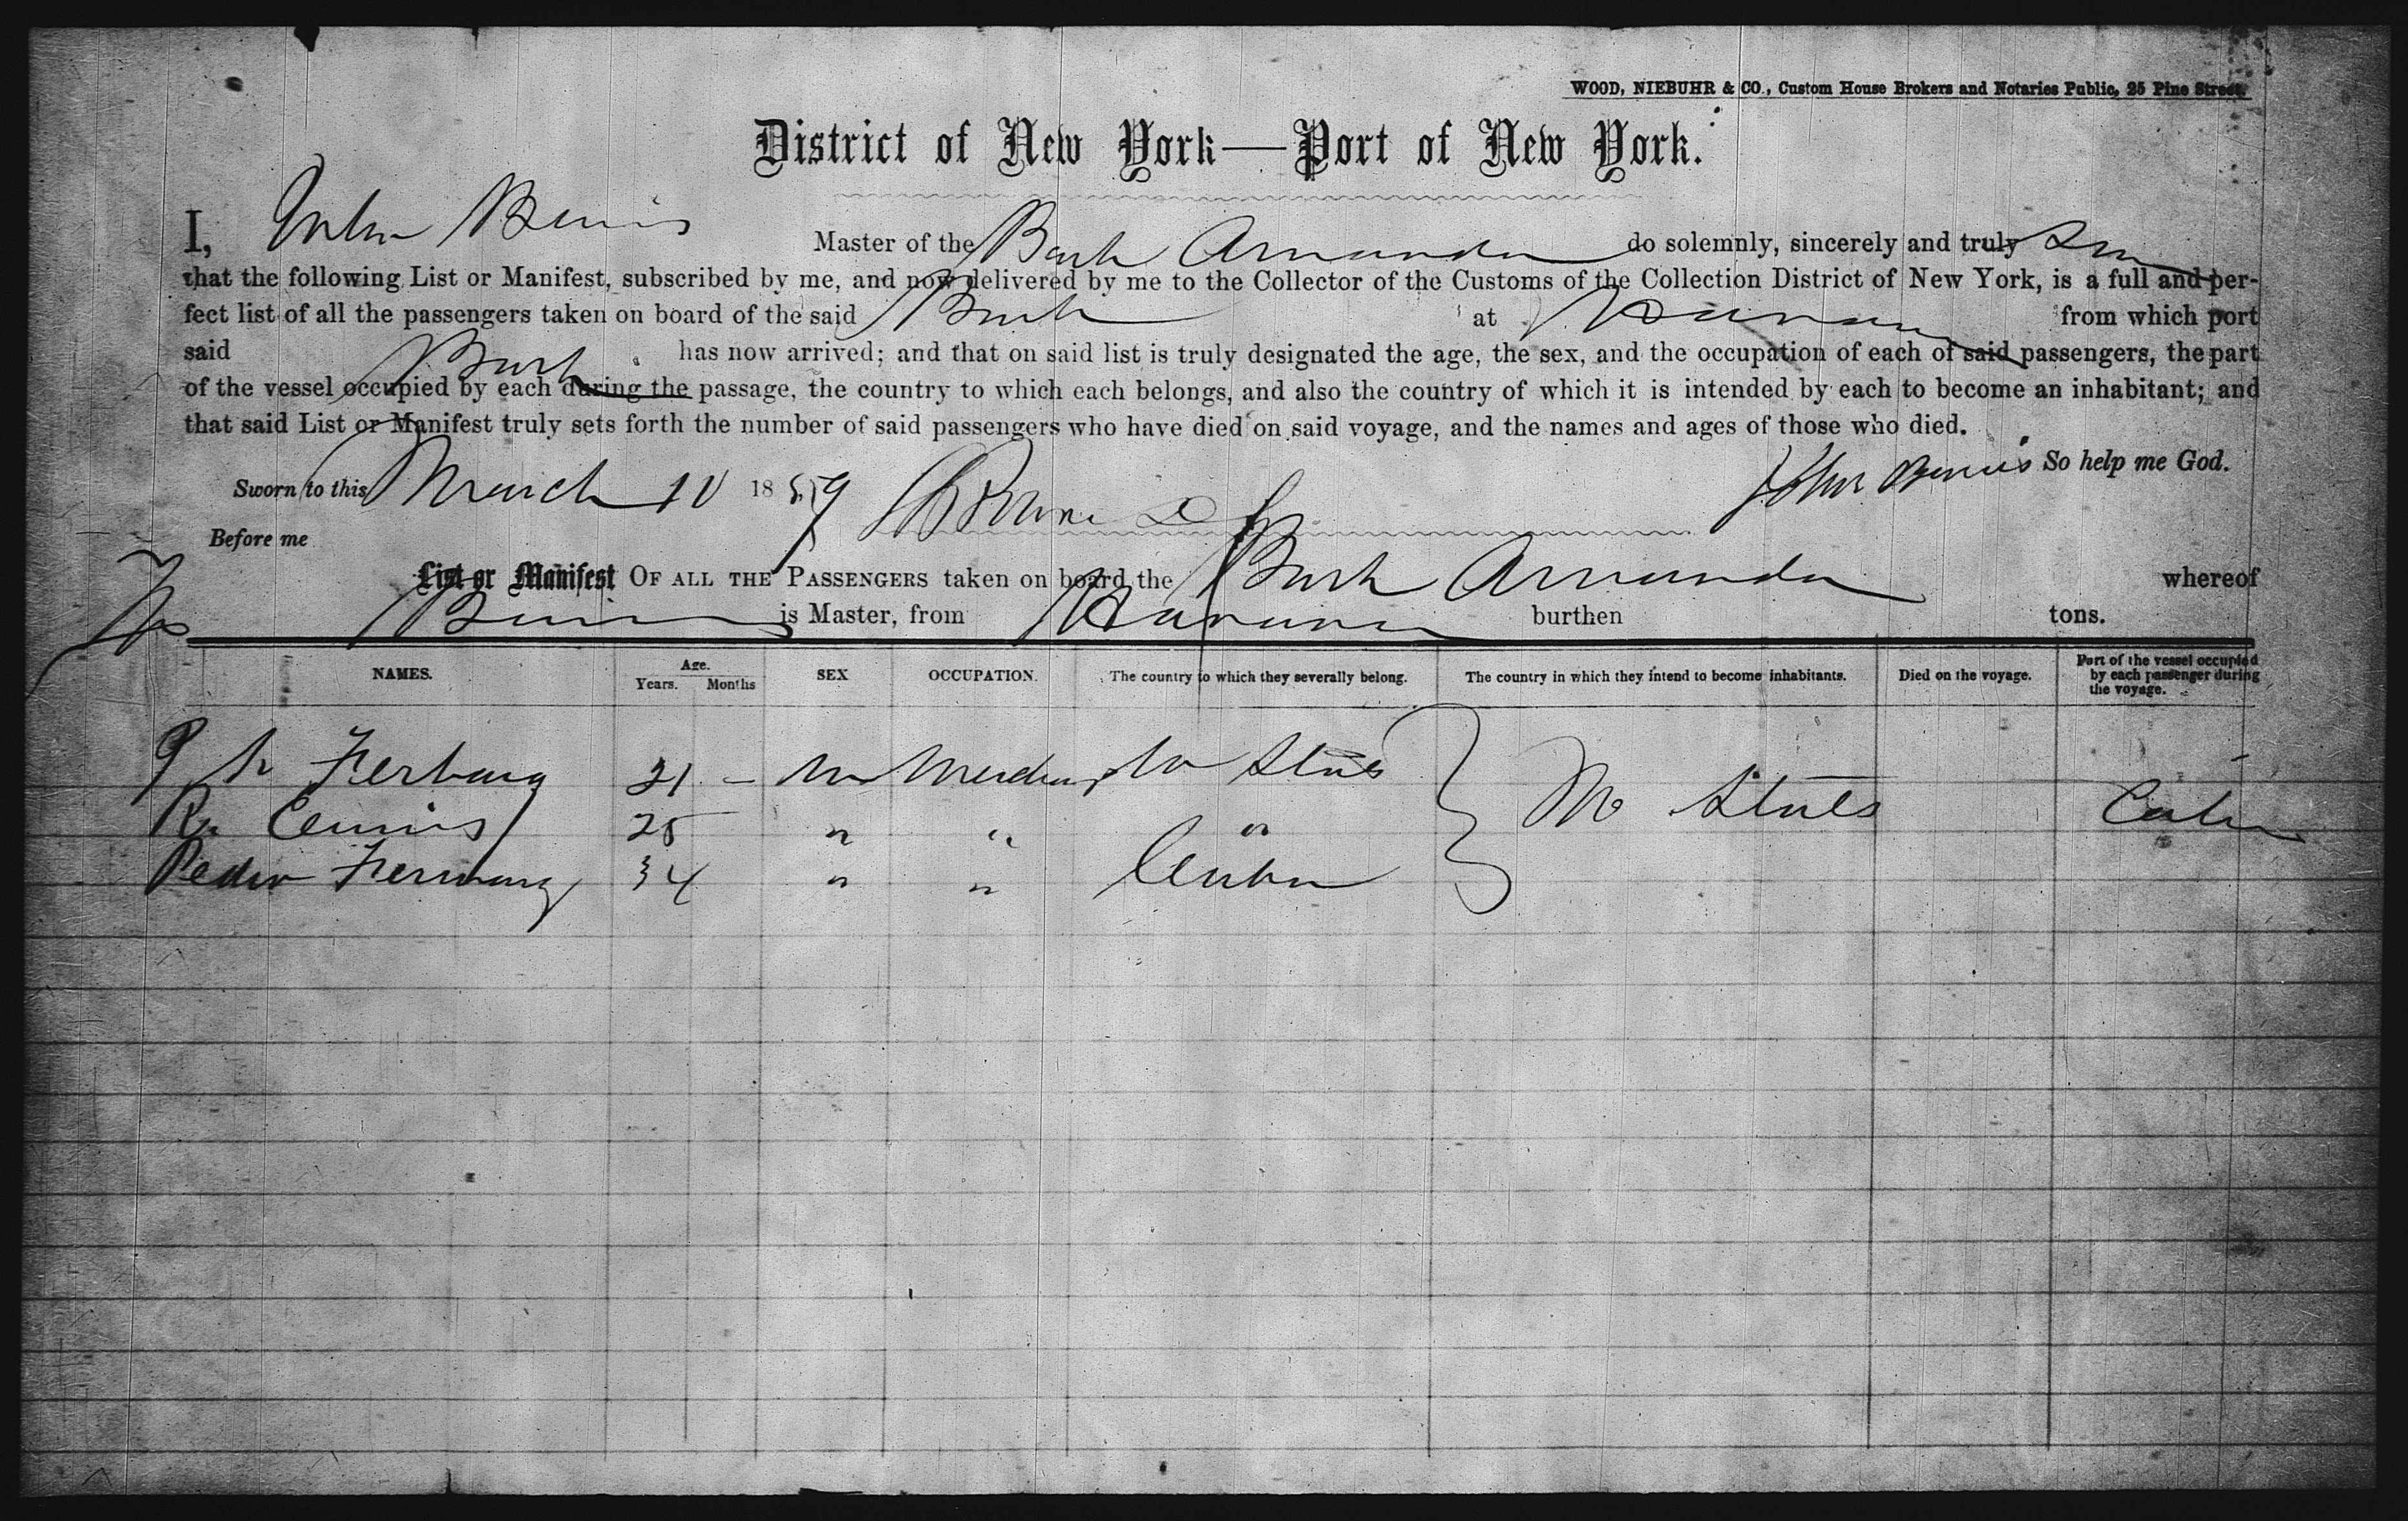 WOOD, NIEBUHR & CO., Custom House Brokers and Notaries Public, 25 Pine Street.
District of New York—Port of New York.
I, John Master of the Bark Amanda do solemnly, sincerely and truly
that the following List or Manifest, subscribed by me, and now delivered by me to the Collector of the Customs of the Collection District of New York, is a full and per-
fect list of all the passengers taken on board of the said Bark at Havana from which port
said Bark has now arrived; and that on said list is truly designated the age, the sex, and the occupation of each of said passengers, the part
of the vessel occupied by each during the passage, the country to which each belongs, and also the country of which it is intended by each to become an inhabitant; and
that said List or Manifest truly sets forth the number of said passengers who have died on said voyage, and the names and ages of those who died.
John So help me God.
Sworn to this March 10 1859
Before me
List or Manifest OF ALL THE PASSENGERS taken on board the Bark Amanda whereof
is Master, from Havana burthen tons.
NAMES. Age. Years. Months SEX OCCUPATION. The country to which they severally belong. The country in which they intend to become inhabitants. Died on the voyage. Part of the vessel occupied by each passenger during the voyage.
21 - M States States Cabin
R. 25 " " "
Pedro 34 " " Cuba